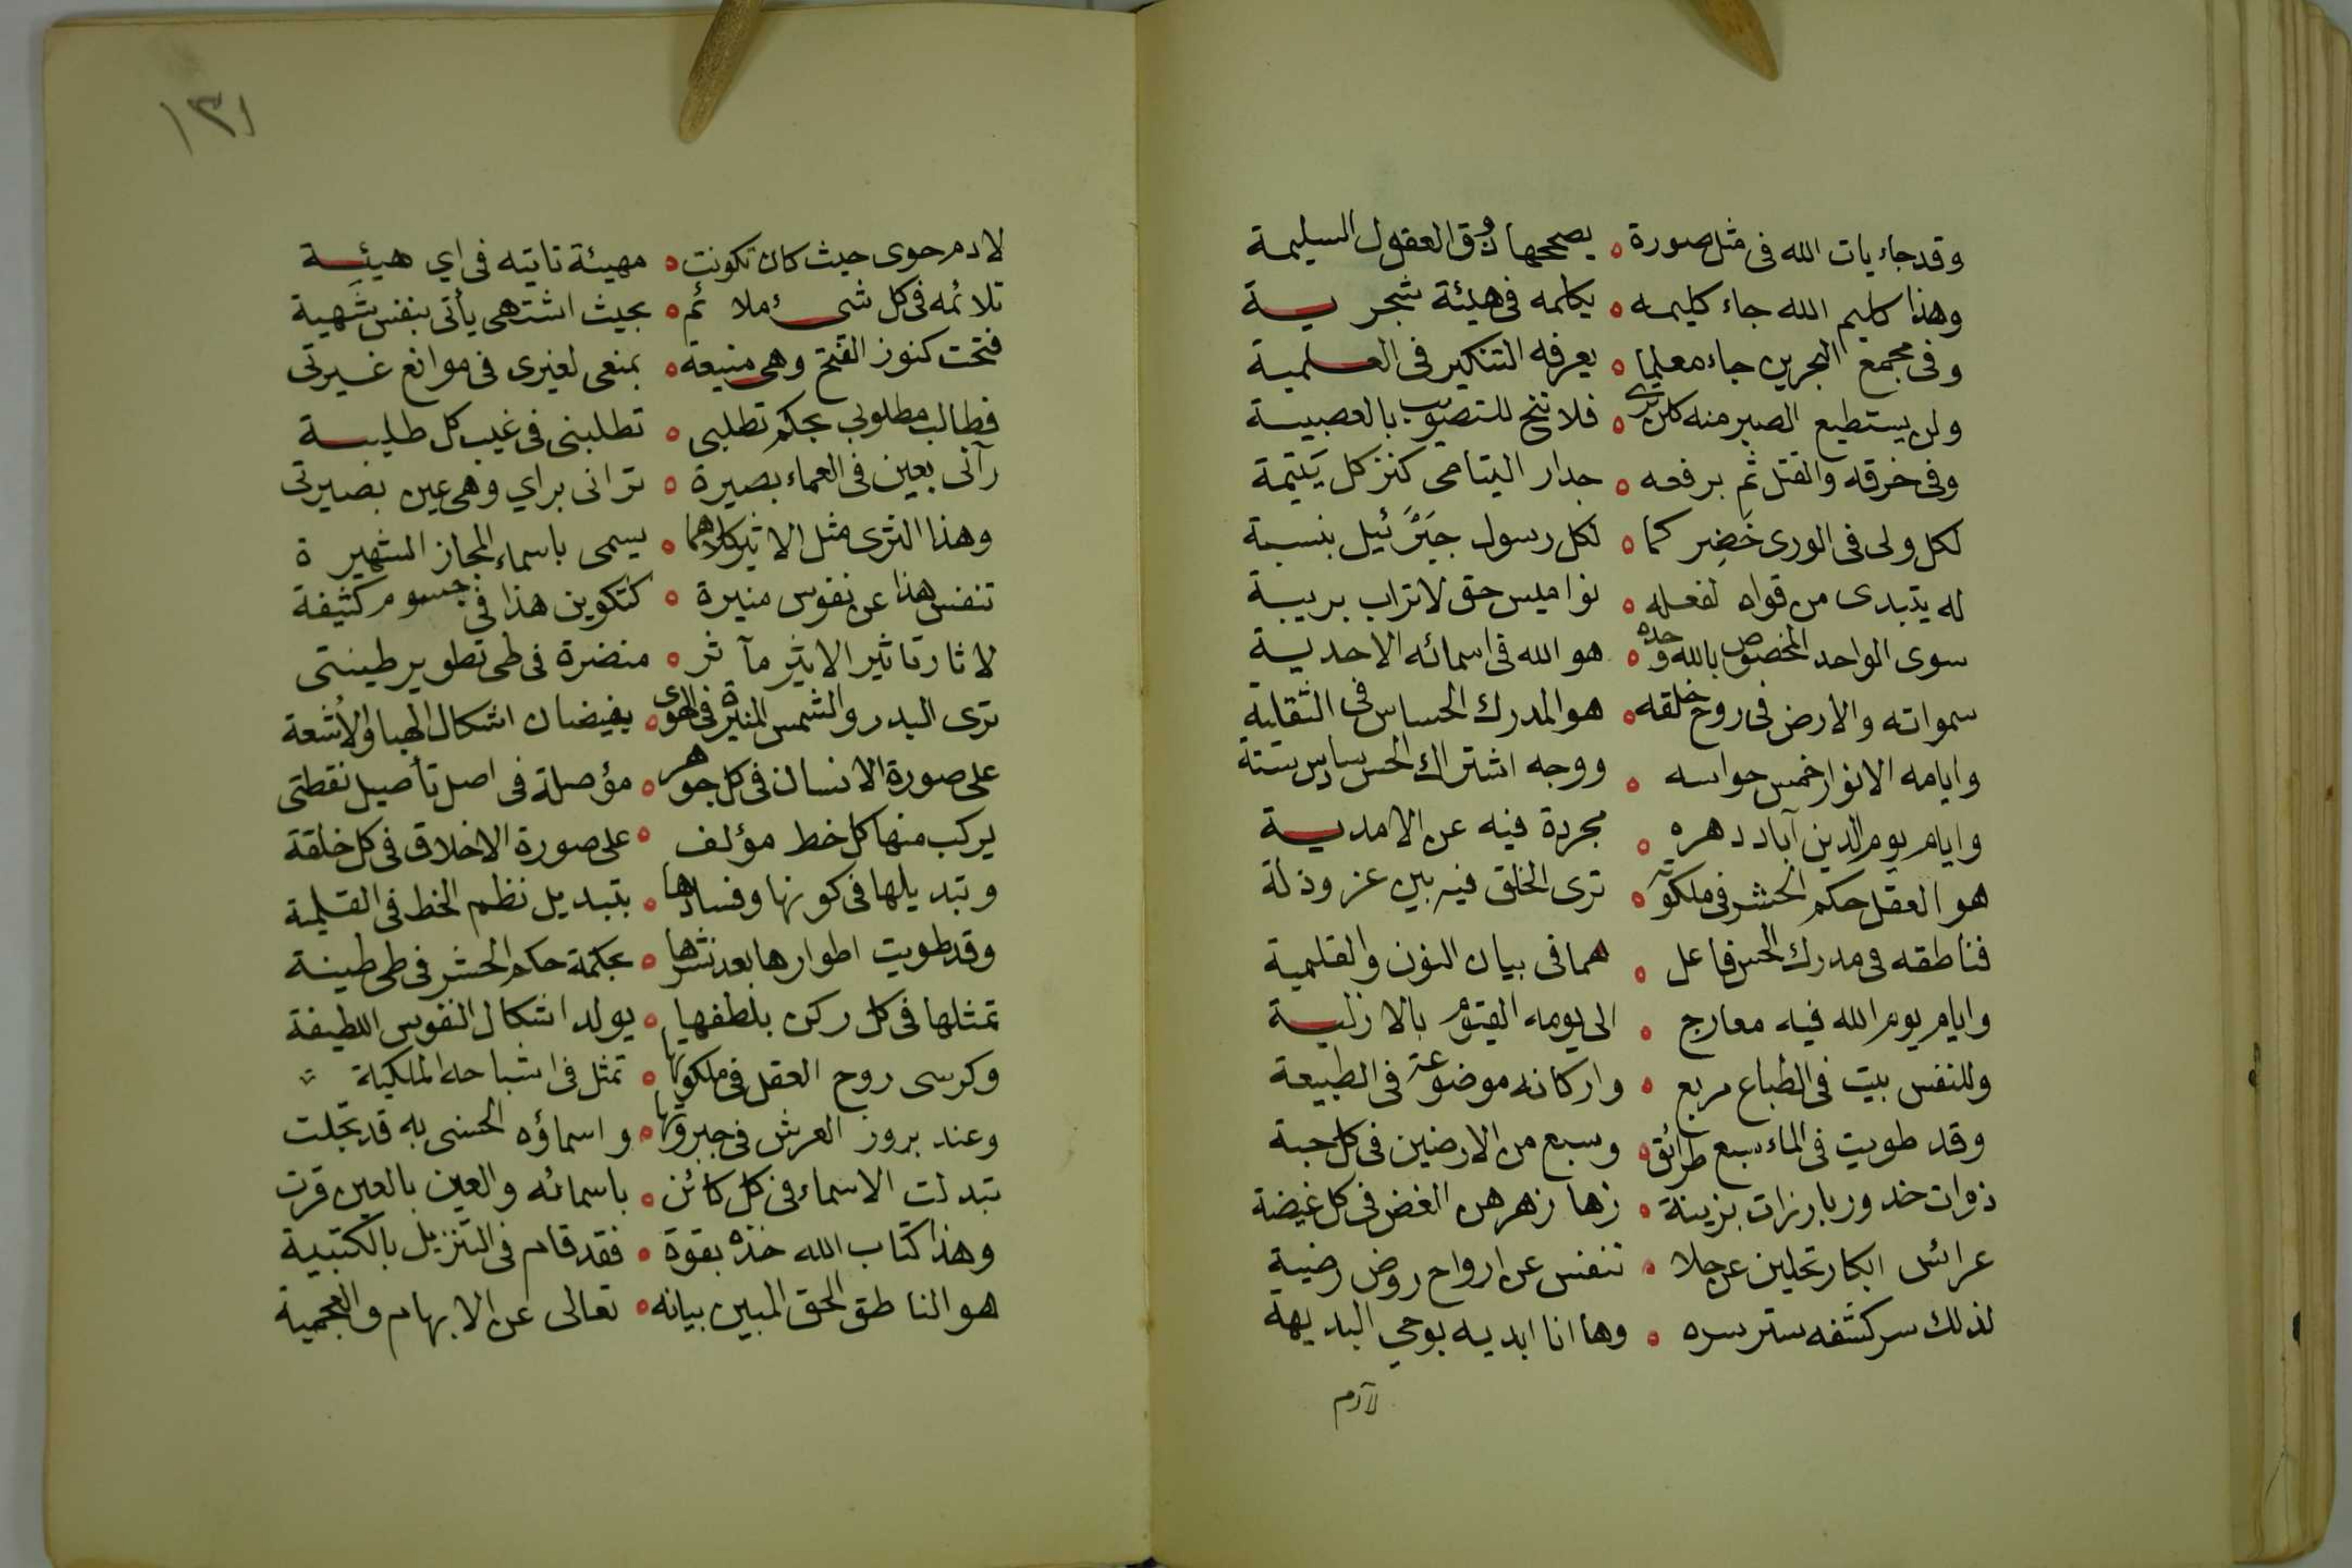 وقد جاء يات الله فى مثل صورة ه يصححها ذوق العقول السليمة
وهذا كليم الله جاء كليمه ه يكلمه فى هيئة شجرية
وفى مجمع البحرين جاء معلما ه يعرفه التنكير فى العلمية
ولن يستطيع الصبر منه كلن ترى ه فلا تنح للتصويب بالعصبية
وفى خرقه والقتل ثم برفعه ه جدار اليتامى كنز كل يَتيمة
لكل ولى فى الورى خَضِر كما ه لكل رسول جبَرئيل بنسبة
له يتبدى من قواه لفعله ه نواميس حق لاتراب بريبة
سوى الواحد المخصوص بالله وحده ه هو الله فى اسمائه الاحدية
سمواته والارض فى روح خلقه ه هو المدرك الحساس فى الثقلية
وايامه الانوار خمس حواسه ه ووجه اشتراك الحس سادس ستة
وايام يوم الدين آباد دهره ه مجردة فيه عن الامدية
هو العقل حكم الحشر فى ملكوته ه ترى الخلق فيه بين عز وذلة
فناطقه فى مدرك الحس فاعل ه هما فى بيان النون والقلمية
وايام يوم الله فيه معارج ه الى يومه القيوم بالازلية
وللنفس بيت فى الطباع مربع ه واركانه موضوعة فى الطبيعة
وقد طويت فى الماء سبع طرائق ه وسبع من الارضين فى كل حبة
ذوات خدور بارزات بزينة ه زها زهرهن الغض فى كل غيضة
عرائس ابكار تجلين عن جلا ه تنفس عن ارواح روض رضية
لذلك سر كشفه ستر سره ه وها انا ابديه بوحي البديهة
لآدم
١٣١
لادم حوى حيث كان تكونت ه مهيئة تاتيه فى اي هيئة
تلائمه فى كل شىء ملائم ه بحيث اشتهى يأتى بنفس شَهية
فتحت كنوز الفتح وهى منيعة ه بمنعى لغيرى فى موانع غيرتى
فطالب مطلوبى بحكم تطلبى ه تطلبنى فى غيب كل طلبية
رآنى بعين فى العماء بصيرة ه ترانى براي وهى عين بصيرتى
وهذا الثرى مثل الاثير كلاهما ه يسمى باسماء المجاز الشهيرة
تنفس هذا عن نفوس منيرة ه كتكوين هذا فى جسوم كثيفة
لاثار تاثير الاثير مآثر ه منضرة فى طى تطوير طينتى
ترى البدر والشمس المنيرة فى الهوى ه يفيضان اشكال الهبا والأشعة
على صورة الانسان فى كل جوهر ه مؤصلة فى اصل تأصيل نقطتى
يركب منها كل خط مؤلف ه على صورة الاخلاق فى كل خلقة
وتبديلها فى كونها وفسادها ه بتبديل نظم الخط فى القلمية
وقد طويت اطوارها بعد نشرها ه بحكمة حكم الحشر فى طى طينة
تمثلها فى كل ركن بلطفها ه يولد اشكال النفوس اللطيفة
وكرسى روح العقل فى ملكوتها ه تمثل فى اشباحه الملكية
وعند بروز العرش فى جبروتها ه واسماؤه الحسنى به قد تجلت
تبدلت الاسماء فى كل كائن ه باسمائه والعين بالعين قرت
وهذا كتاب الله خذه بقوة ه فقد قام فى التنزيل بالكتبية
هو الناطق الحق المبين بيانه ه تعالى عن الابهام والعجمية